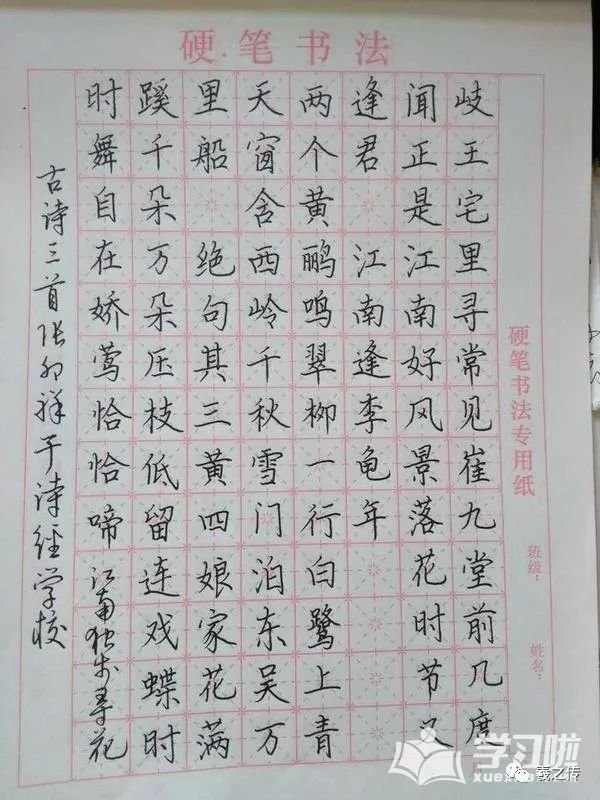 硬笔书法
岐王宅里寻常见崔九堂前几度
闻正是江南好风景落花时节又
逢君 江南逢李龟年
两个黄鹂鸣翠柳一行白鹭上青
天窗含西岭千秋雪门泊东吴万
里船 绝句其三黄四娘家花满
蹊千朵万朵压枝低留连戏蝶时
时舞自在娇莺恰恰啼 江南独步寻花
古诗三首张 祥于诗经学校
硬笔书法专用纸
班级:
姓名:
学习啦
羲之传